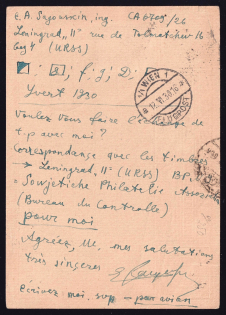 E.A. Sajonskin, ing. CA 6705/26
Leningrad, "11" rue de 16
(URSS)
Yvert 1930
WIEN 1
FLUGPOST
Voulez vous faire l'échange de
t.p. avec moi?
Correspondance avec les timbres
→ Leningrad, 11 (URSS) BP.
Sowjetische Philatelie
(Bureau du Controlle)
pour moi
Agréez, M, mes salutations
très sincères
Ecrivez moi, svp - par avion